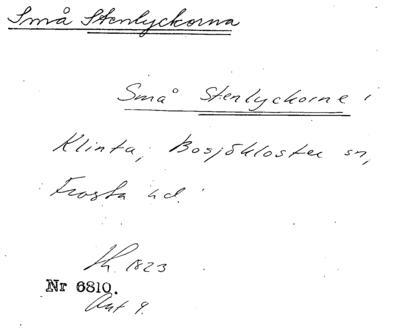 Små Stenlyckorna
Små Stenlyckorne i
Klinta, Bosjökloster sn,
Frosta hd.
1823
Nr 6810.
Akt 9.